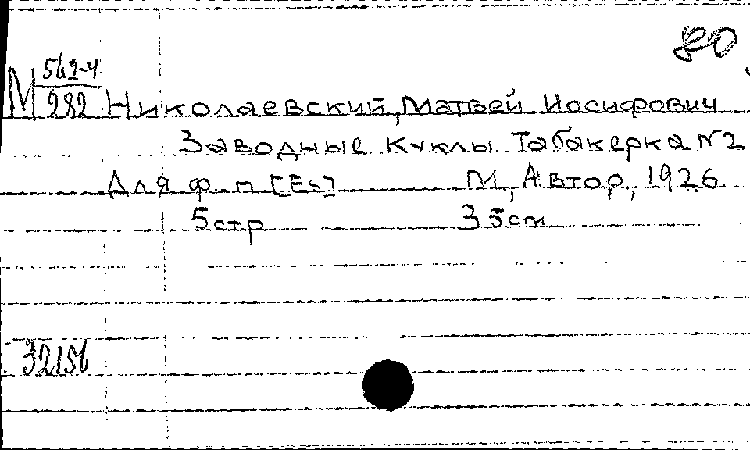 80
М 562-4
282
Николаевский, Матвей Иосифович
Заводные куклы Табакерка N2
Для ф. п. [Es] М, Автор, 1926
5 стр 35 см
32156